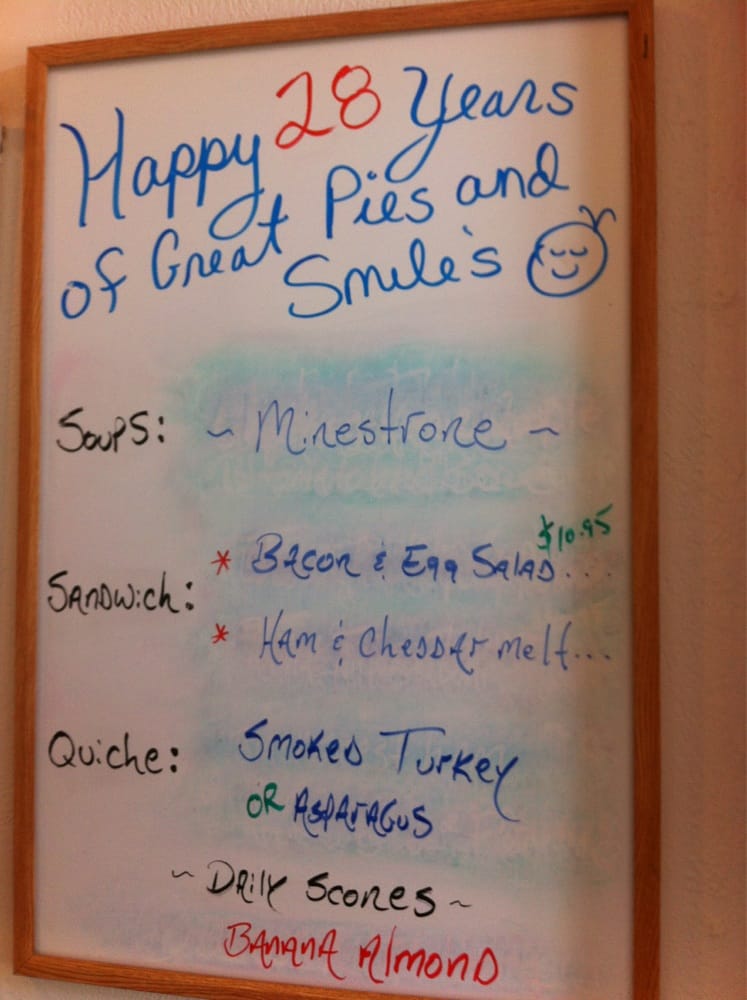 Happy 28 Years
of Great Pies and
Smile's
Soups: ~ Minestrone ~
$10.95
Sandwich: * Bacon & Egg Salad...
* Ham & Cheddar melt...
Quiche: Smoked Turkey
OR Asparagus
~ Daily Scones ~
Banana Almond